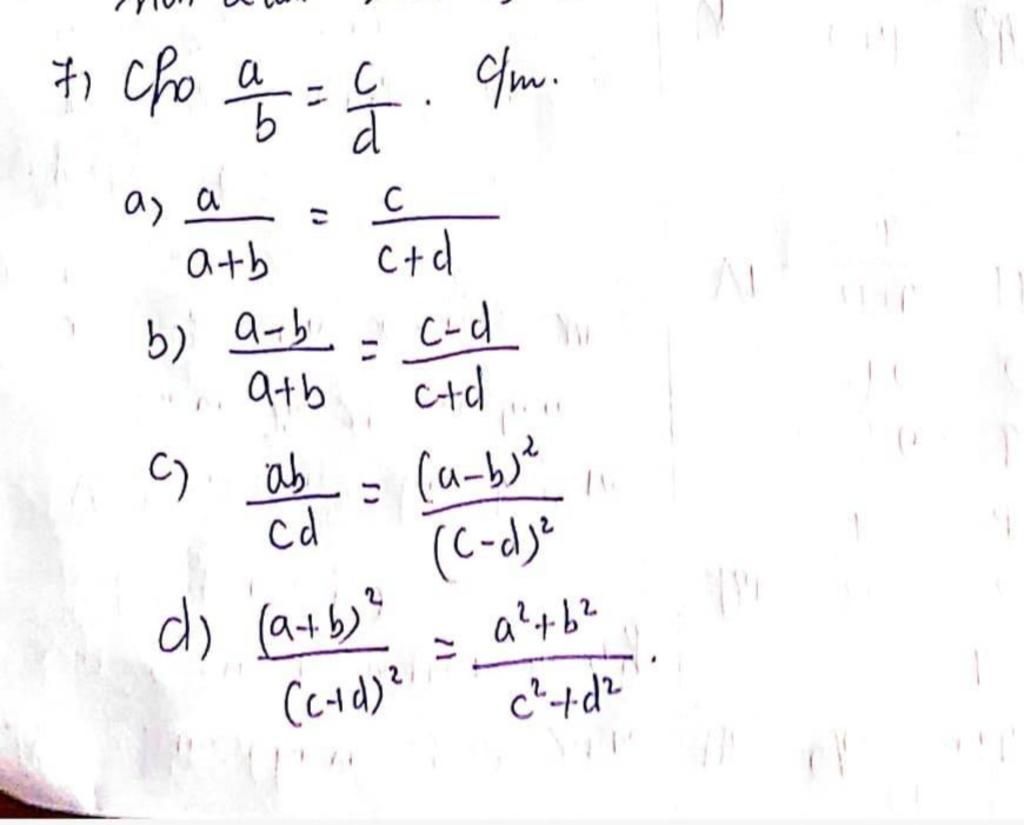 7) Cho a/b = c/d. C/m.
a) a/(a+b) = c/(c+d)
b) (a-b)/(a+b) = (c-d)/(c+d)
c) ab/cd = (a-b)²/(c-d)²
d) (a+b)²/(c+d)² = (a²+b²)/(c²+d²).